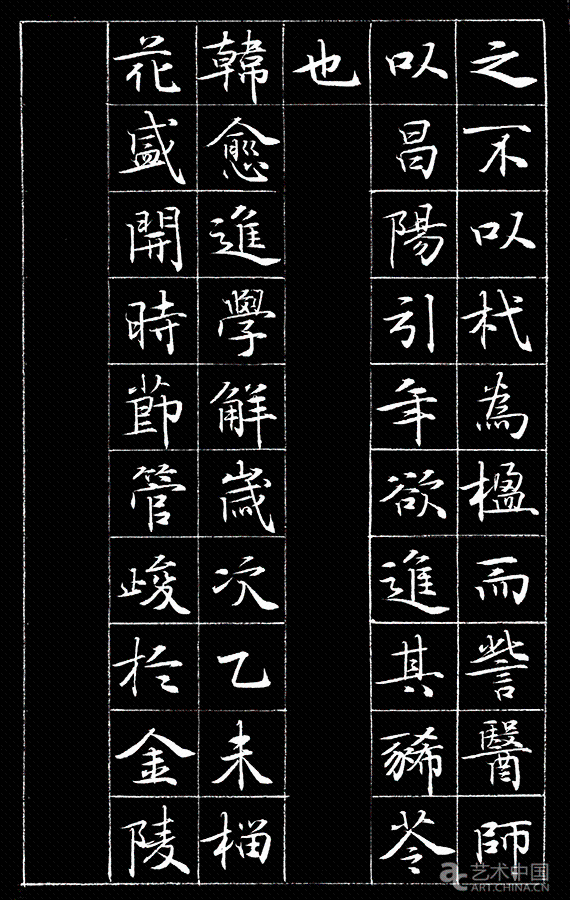 之不以杙為楹而訾醫師
以昌陽引年欲進其豨苓
也
韓愈進學解歲次乙未榴
花盛開時節管峻於金陵
艺术中国
ART.CHINA.CN